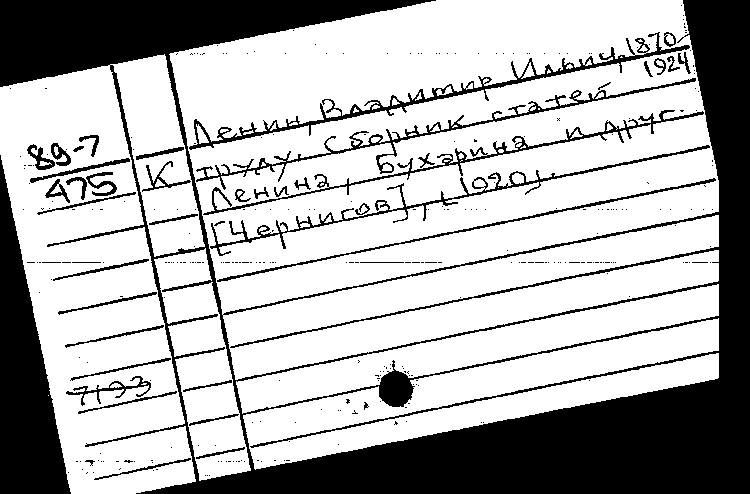 Ленин, Владимир Ильич, 1870
1924
89-7
475
К
труду. Сборник статей
Ленина, Бухарина и друг.
[Чернигов], [1920].
7193